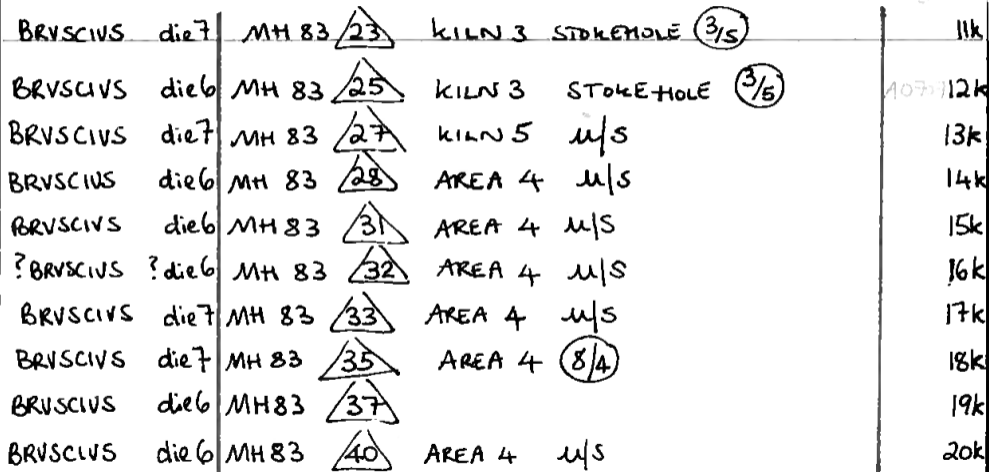 BRVSCIVS die7 MH 83 23 KILN 3 STOKEHOLE 3/5 11k
BRVSCIVS die6 MH 83 25 KILN 3 STOKEHOLE 3/5 12k
BRVSCIVS die7 MH 83 27 KILN 5 u/s 13k
BRVSCIVS die6 MH 83 28 AREA 4 u/s 14k
BRVSCIVS die6 MH 83 31 AREA 4 u/s 15k
?BRVSCIVS ?die6 MH 83 32 AREA 4 u/s 16k
BRVSCIVS die7 MH 83 33 AREA 4 u/s 17k
BRVSCIVS die7 MH 83 35 AREA 4 8/4 18k
BRVSCIVS die6 MH83 37 19k
BRVSCIVS die6 MH83 40 AREA 4 u/s 20k